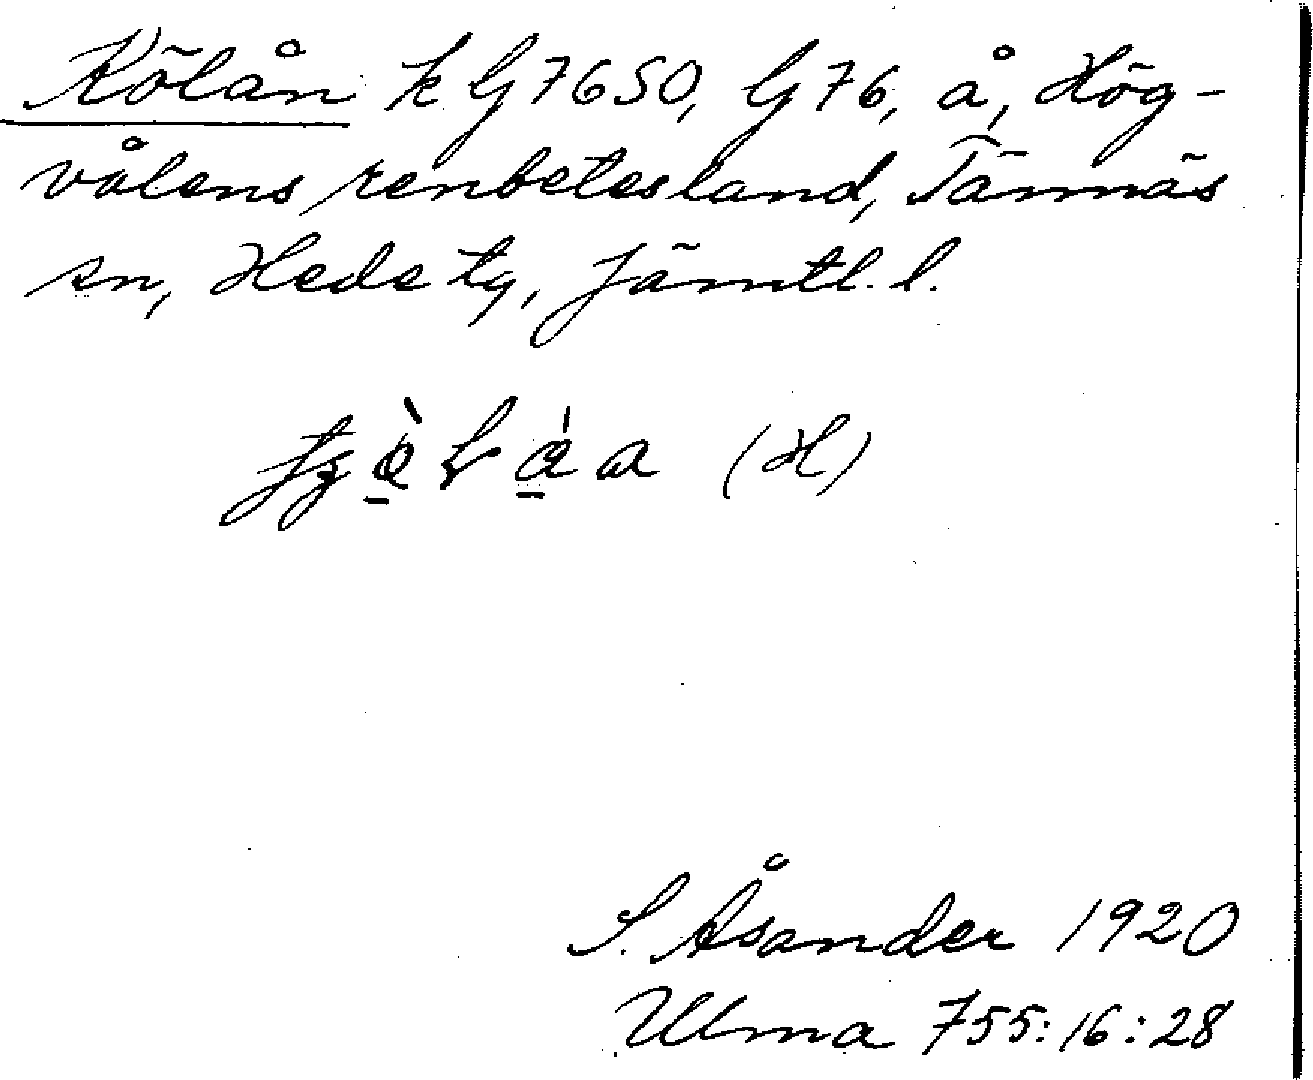 Kölån k G 76 SO, G 76, å, Hög-
vålens renbetesland, Tännäs
sn, Hede tg, Jämtl. l.
(H)
S. Åsander 1920
Ulma 755:16:28